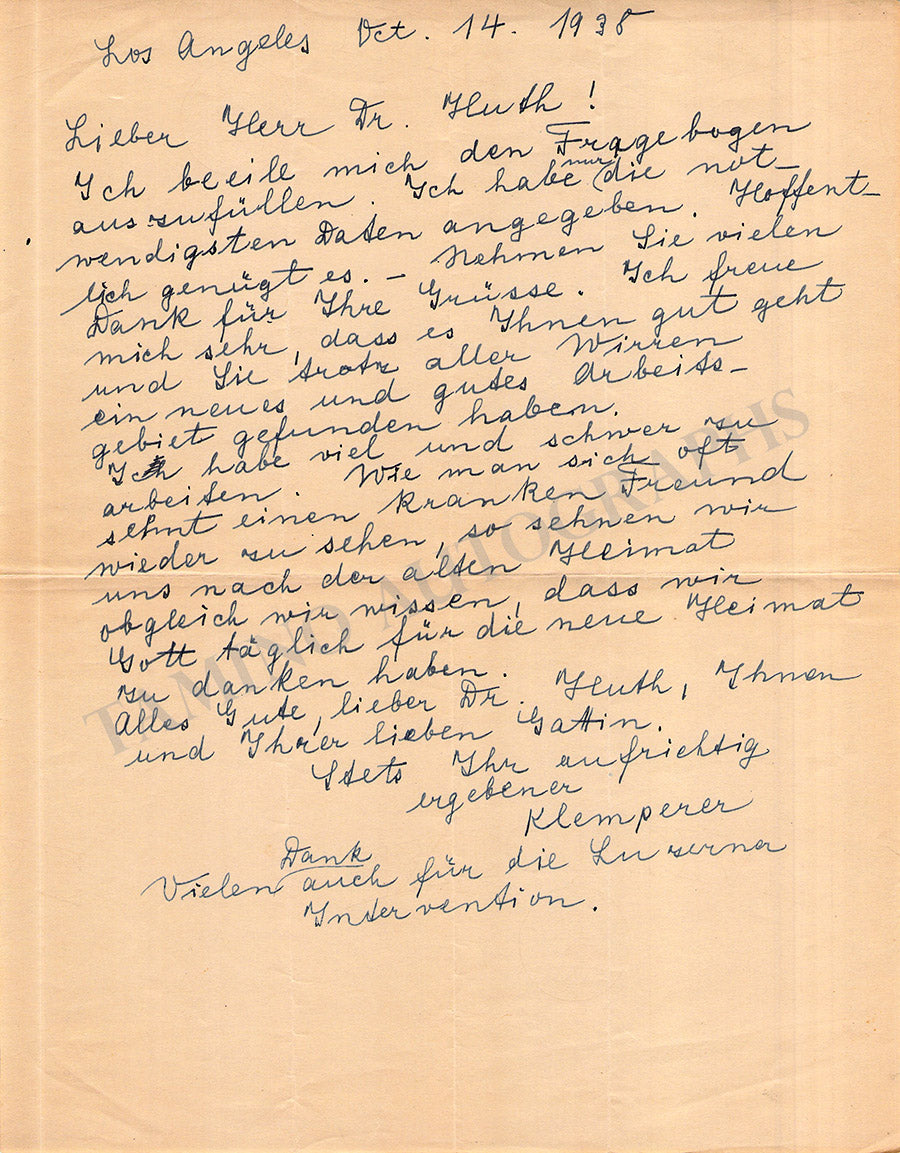 Los Angeles Oct. 14. 1938
Lieber Herr Dr. Huth!
Ich beeile mich den Fragebogen
auszufüllen. Ich habe nur die not-
wendigsten Daten angegeben. Hoffent-
lich genügt es. – Nehmen Sie vielen
Dank für Ihre Grüsse. Ich freue
mich sehr, dass es Ihnen gut geht
und Sie trotz aller Wirren
ein neues und gutes Arbeits-
gebiet gefunden haben.
Ich habe viel und schwer zu
arbeiten. Wie man sich oft
sehnt einen kranken Freund
wieder zu sehen, so sehnen wir
uns nach der alten Heimat
obgleich wir wissen, dass wir
Gott täglich für die neue Heimat
zu danken haben.
Alles Gute, lieber Dr. Huth, Ihnen
und Ihrer lieben Gattin.
Stets Ihr aufrichtig
ergebener
Klemperer
Vielen Dank auch für die Luzerner
Intervention.
TAMINO AUTOGRAPHS